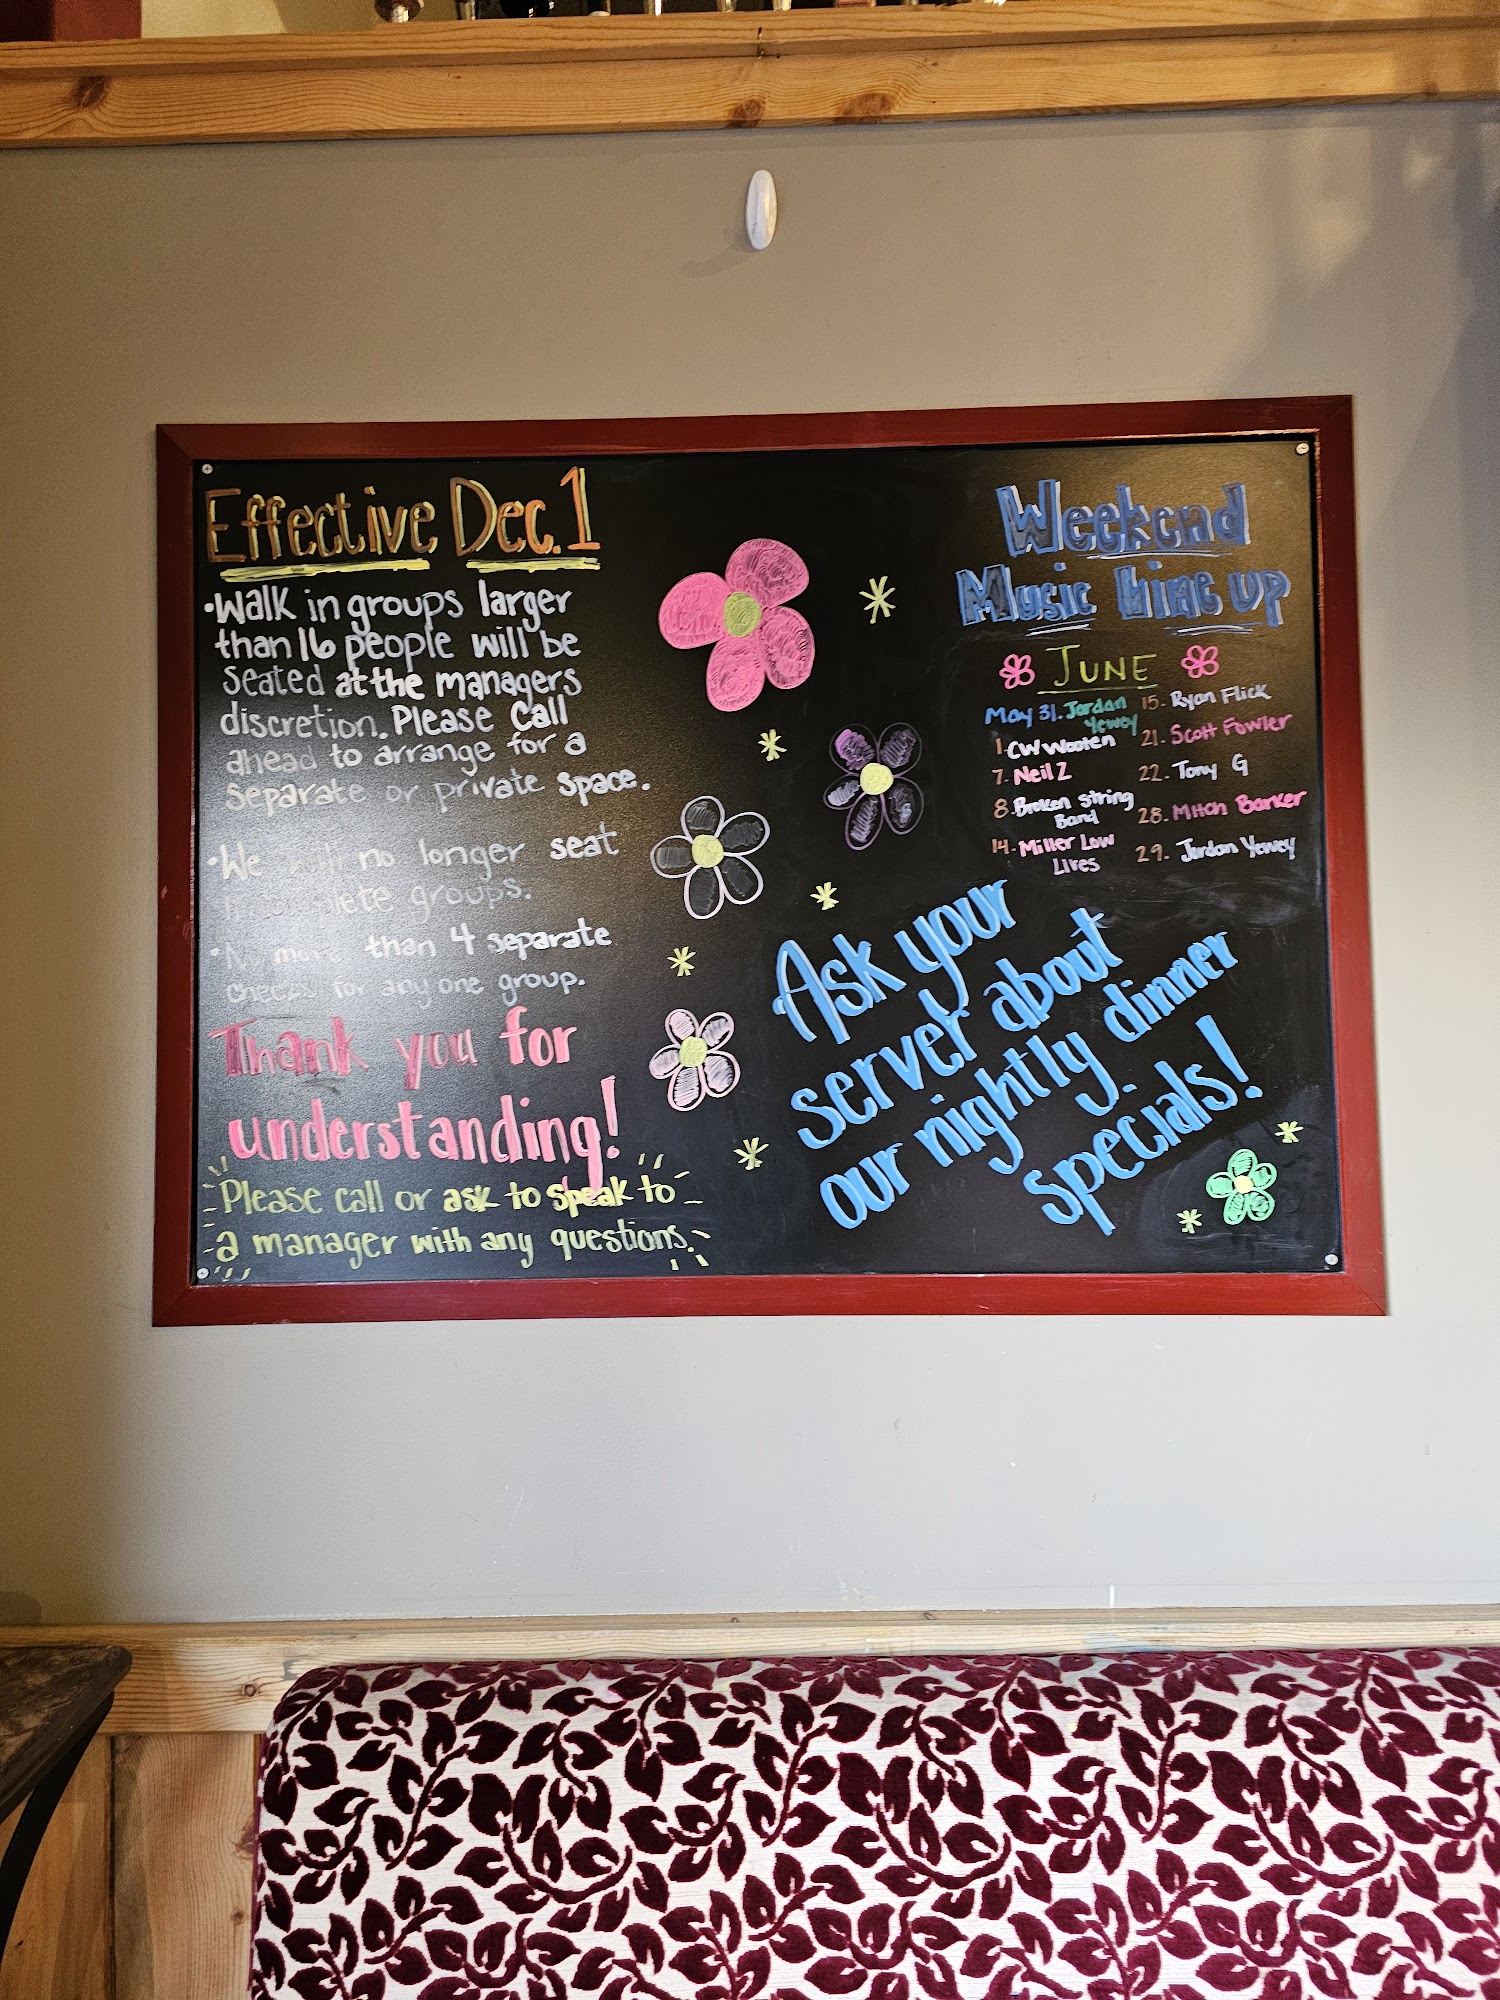 Effective Dec. 1
• Walk in groups larger
than 16 people will be
seated at the managers
discretion. Please call
ahead to arrange for a
separate or private space.
• We will no longer seat
incomplete groups.
• No more than 4 separate
checks for any one group.
Thank you for
understanding!
Please call or ask to speak to
a manager with any questions.
Weekend
Music Line up
JUNE
May 31. Jordan
Yewey
1. CW Wooten
7. Neil Z
8. Broken String
Band
14. Miller Low
Lifes
15. Ryan Flick
21. Scott Fowler
22. Tony G
28. Mitch Barker
29. Jordan Yewey
Ask your
server about
our nightly dinner
specials!